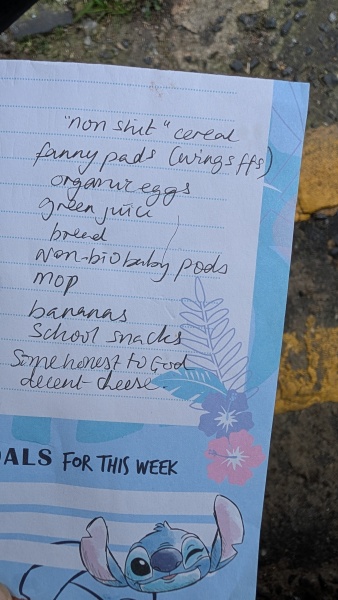 "non shit" cereal
fanny pads (wings ffs)
organic eggs
green juice
bread
non-bio baby pods
mop
bananas
School snacks
Some honest to God
decent cheese.
OALS FOR THIS WEEK